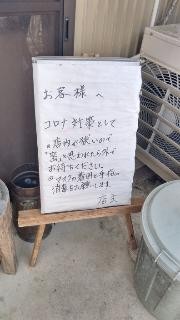 お客様へ
コロナ対策として
◎店内が狭いので
"密"と思われたら外で
お待ちください。
◎マスクの着用と手指の
消毒をお願いします。
店主